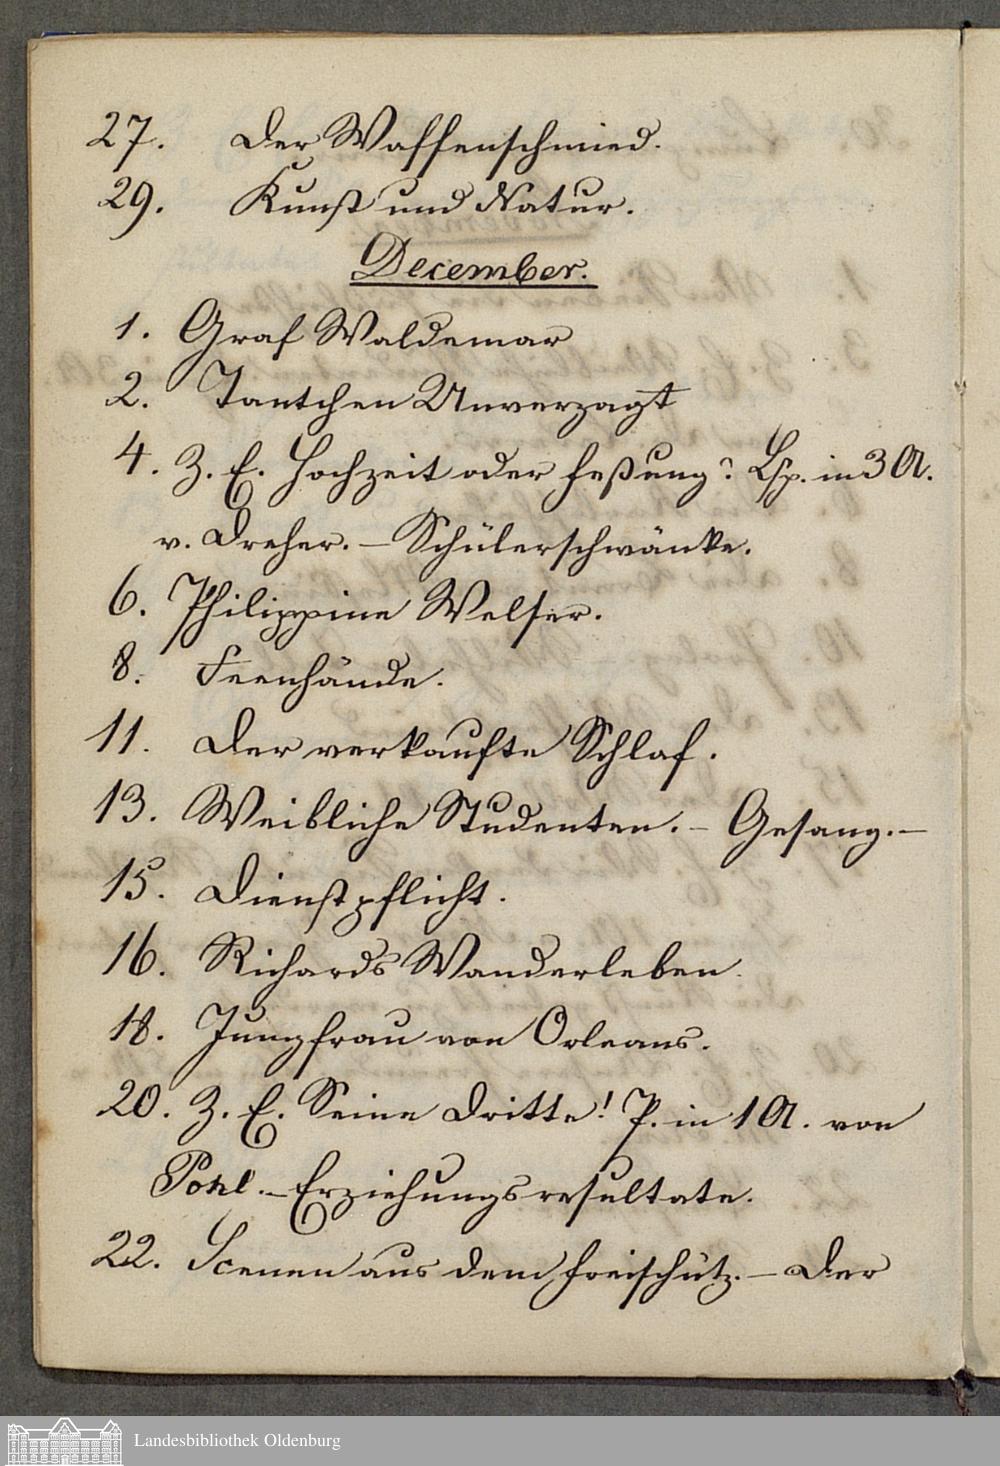 27. Der Waffenschmied.
29. Kunst und Natur.
December.
1. Graf Waldemar
2. Tantchen Unverzagt
4. Z. E. Hochzeit oder Festung? Lsp. in 3 A.
v. Dreher. – Schülerschwänke.
6. Philippine Welser.
8. Feenhände.
11. Der verkaufte Schlaf.
13. Weibliche Studenten. – Gesang. –
15. Dienstpflicht.
16. Richards Wanderleben.
18. Jungfrau von Orleans.
20. Z. E. Seine Dritte! P. in 1 A. von
Pohl. – Erziehungsresultate.
22. Scenen aus dem Freischütz. – Der
Landesbibliothek Oldenburg